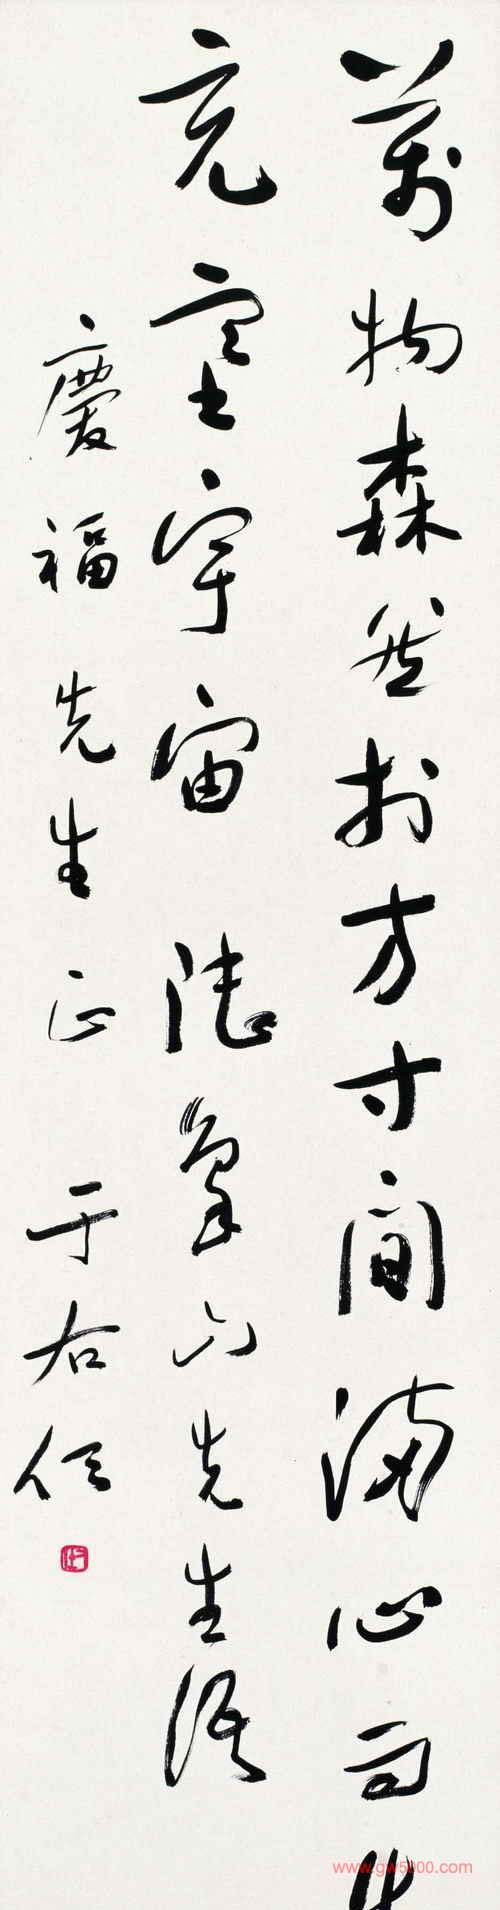 萬物森然於方寸間滿心而
充塞宇宙 陸象山先生語
慶福先生正 于右任